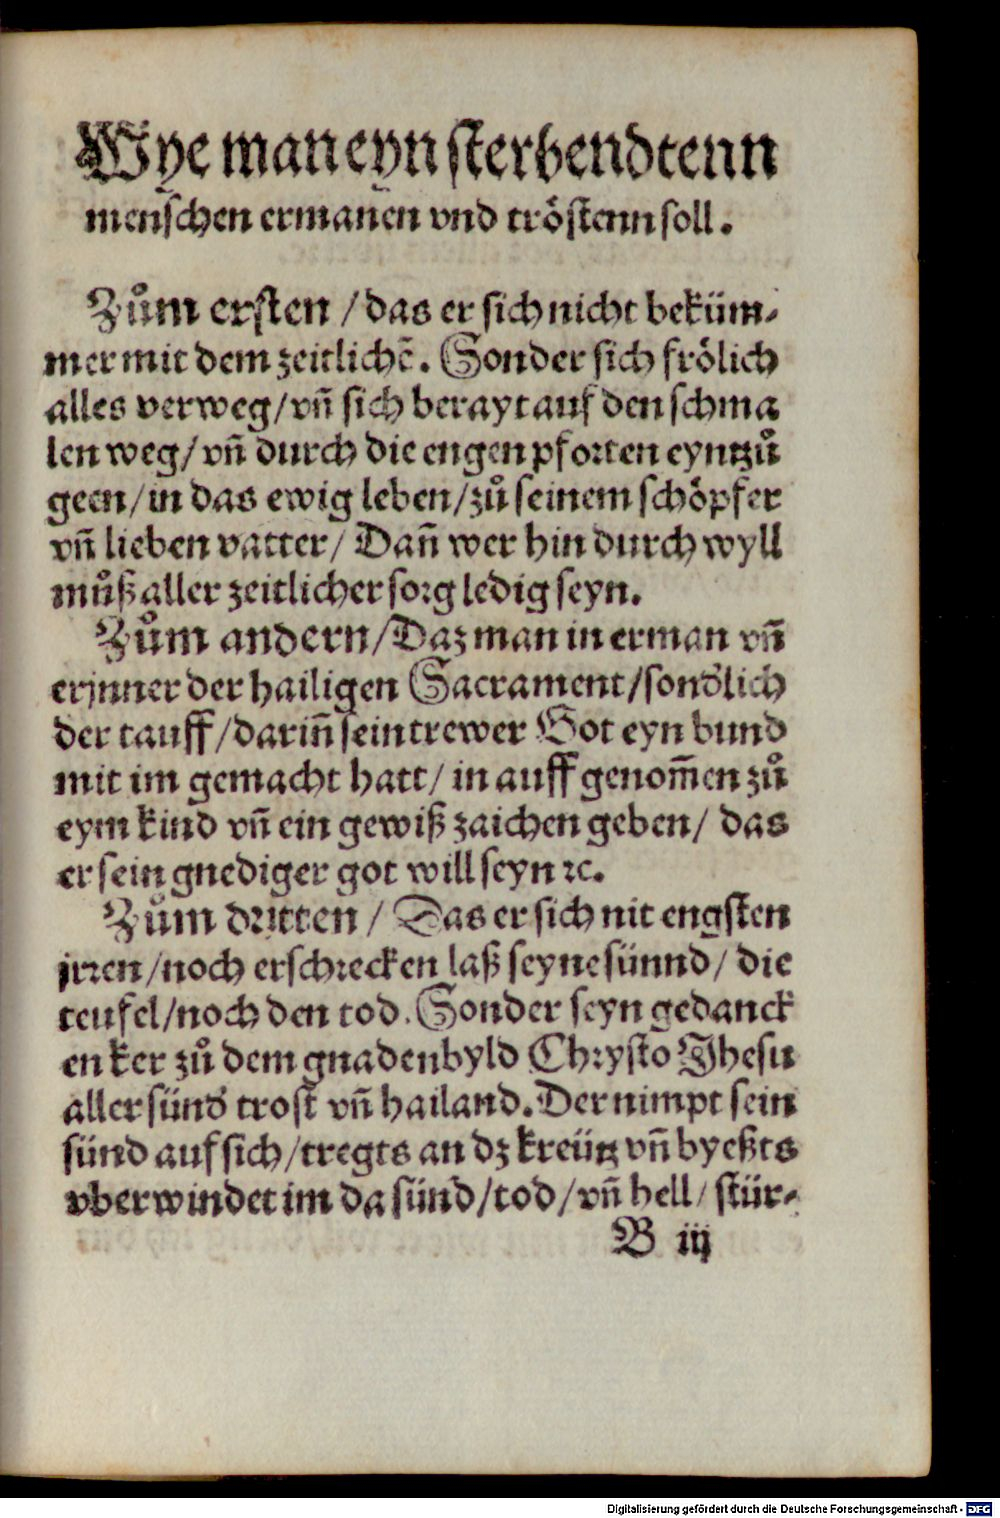 Wye man eyn sterbendtenn
menschen ermanen vnd tröstenn soll.
Zům ersten / das er sich nicht beküm-
mer mit dem zeitlichē. Sonder sich frölich
alles verweg / vn̄ sich berayt auf den schma
len weg / vn̄ durch die engen pforten eyntzů
geen / in das ewig leben / zů seinem schöpfer
vn̄ lieben vatter / Dan̄ wer hin durch wyll
můß aller zeitlicher sorg ledig seyn.
Zům andern / Daz man in erman vn̄
erjnner der hailigen Sacrament / sond'lich
der tauff / darin̄ sein trewer Got eyn bund
mit im gemacht hatt / in auff genom̄en zů
eym kind vn̄ ein gewiß zaichen geben / das
er sein gnediger got will seyn ꝛc.
Zům dritten / Das er sich nit engsten
jrren / noch erschrecken laß seyne sünnd / die
teufel / noch den tod. Sonder seyn gedanck
en ker zů dem gnadenbyld Chrysto Jhesu
aller sünd' trost vn̄ hailand. Der nimpt sein
sünd auf sich / tregts an dz kreütz vn̄ byeßts
vberwindet im da sünd / tod / vn̄ hell / stür-
B iij
Digitalisierung gefördert durch die Deutsche Forschungsgemeinschaft - DFG